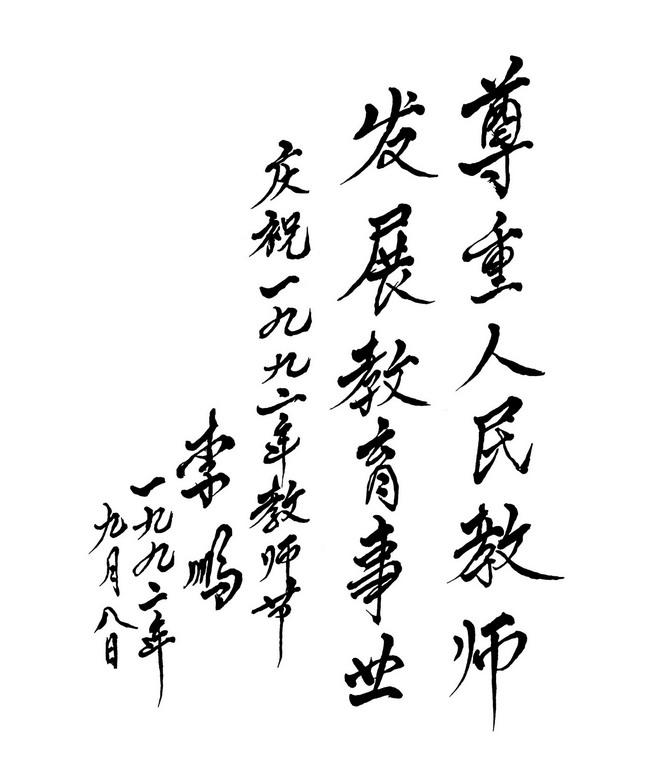 尊重人民教师
发展教育事业
庆祝一九九二年教师节
李鹏
一九九二年
九月八日